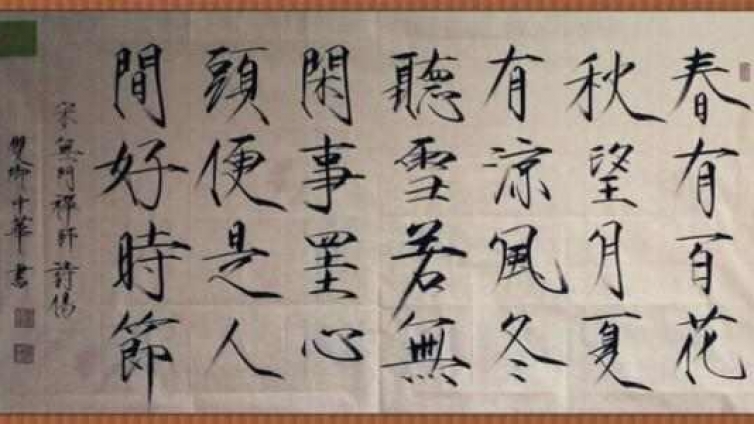 春有百花
秋望月夏
有凉風冬
聽雪若無
閑事罣心
頭便是人
間好時節
宋無門禪師詩偈
中華書